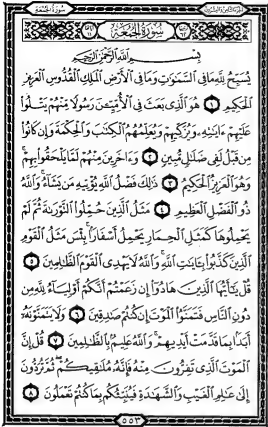 سورة الجمعة
سُورَةُ الجُمُعَةِ
بِسْمِ اللَّهِ الرَّحْمَٰنِ الرَّحِيمِ
يُسَبِّحُ لِلَّهِ مَا فِي السَّمَٰوَٰتِ وَمَا فِي الْأَرْضِ الْمَلِكِ الْقُدُّوسِ الْعَزِيزِ
الْحَكِيمِ ١ هُوَ الَّذِي بَعَثَ فِي الْأُمِّيِّۦنَ رَسُولًا مِّنْهُمْ يَتْلُوا
عَلَيْهِمْ ءَايَٰتِهِۦ وَيُزَكِّيهِمْ وَيُعَلِّمُهُمُ الْكِتَٰبَ وَالْحِكْمَةَ وَإِن كَانُوا
مِن قَبْلُ لَفِي ضَلَٰلٍ مُّبِينٍ ٢ وَءَاخَرِينَ مِنْهُمْ لَمَّا يَلْحَقُوا بِهِمْ
وَهُوَ الْعَزِيزُ الْحَكِيمُ ٣ ذَٰلِكَ فَضْلُ اللَّهِ يُؤْتِيهِ مَن يَشَاءُ وَاللَّهُ
ذُو الْفَضْلِ الْعَظِيمِ ٤ مَثَلُ الَّذِينَ حُمِّلُوا التَّوْرَىٰةَ ثُمَّ لَمْ
يَحْمِلُوهَا كَمَثَلِ الْحِمَارِ يَحْمِلُ أَسْفَارًا بِئْسَ مَثَلُ الْقَوْمِ
الَّذِينَ كَذَّبُوا بِـَٔايَٰتِ اللَّهِ وَاللَّهُ لَا يَهْدِي الْقَوْمَ الظَّٰلِمِينَ ٥
قُلْ يَٰأَيُّهَا الَّذِينَ هَادُوا إِن زَعَمْتُمْ أَنَّكُمْ أَوْلِيَاءُ لِلَّهِ مِن
دُونِ النَّاسِ فَتَمَنَّوُا الْمَوْتَ إِن كُنتُمْ صَٰدِقِينَ ٦ وَلَا يَتَمَنَّوْنَهُۥ
أَبَدًا بِمَا قَدَّمَتْ أَيْدِيهِمْ وَاللَّهُ عَلِيمٌ بِالظَّٰلِمِينَ ٧ قُلْ إِنَّ
الْمَوْتَ الَّذِي تَفِرُّونَ مِنْهُ فَإِنَّهُۥ مُلَٰقِيكُمْ ثُمَّ تُرَدُّونَ
إِلَىٰ عَٰلِمِ الْغَيْبِ وَالشَّهَٰدَةِ فَيُنَبِّئُكُم بِمَا كُنتُمْ تَعْمَلُونَ ٨
٥٥٣